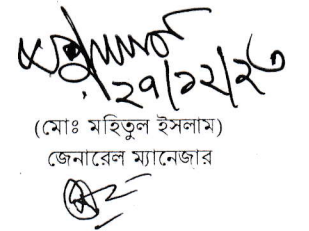 ২৭/১২/২৩
(মোঃ মহিতুল ইসলাম)
জেনারেল ম্যানেজার